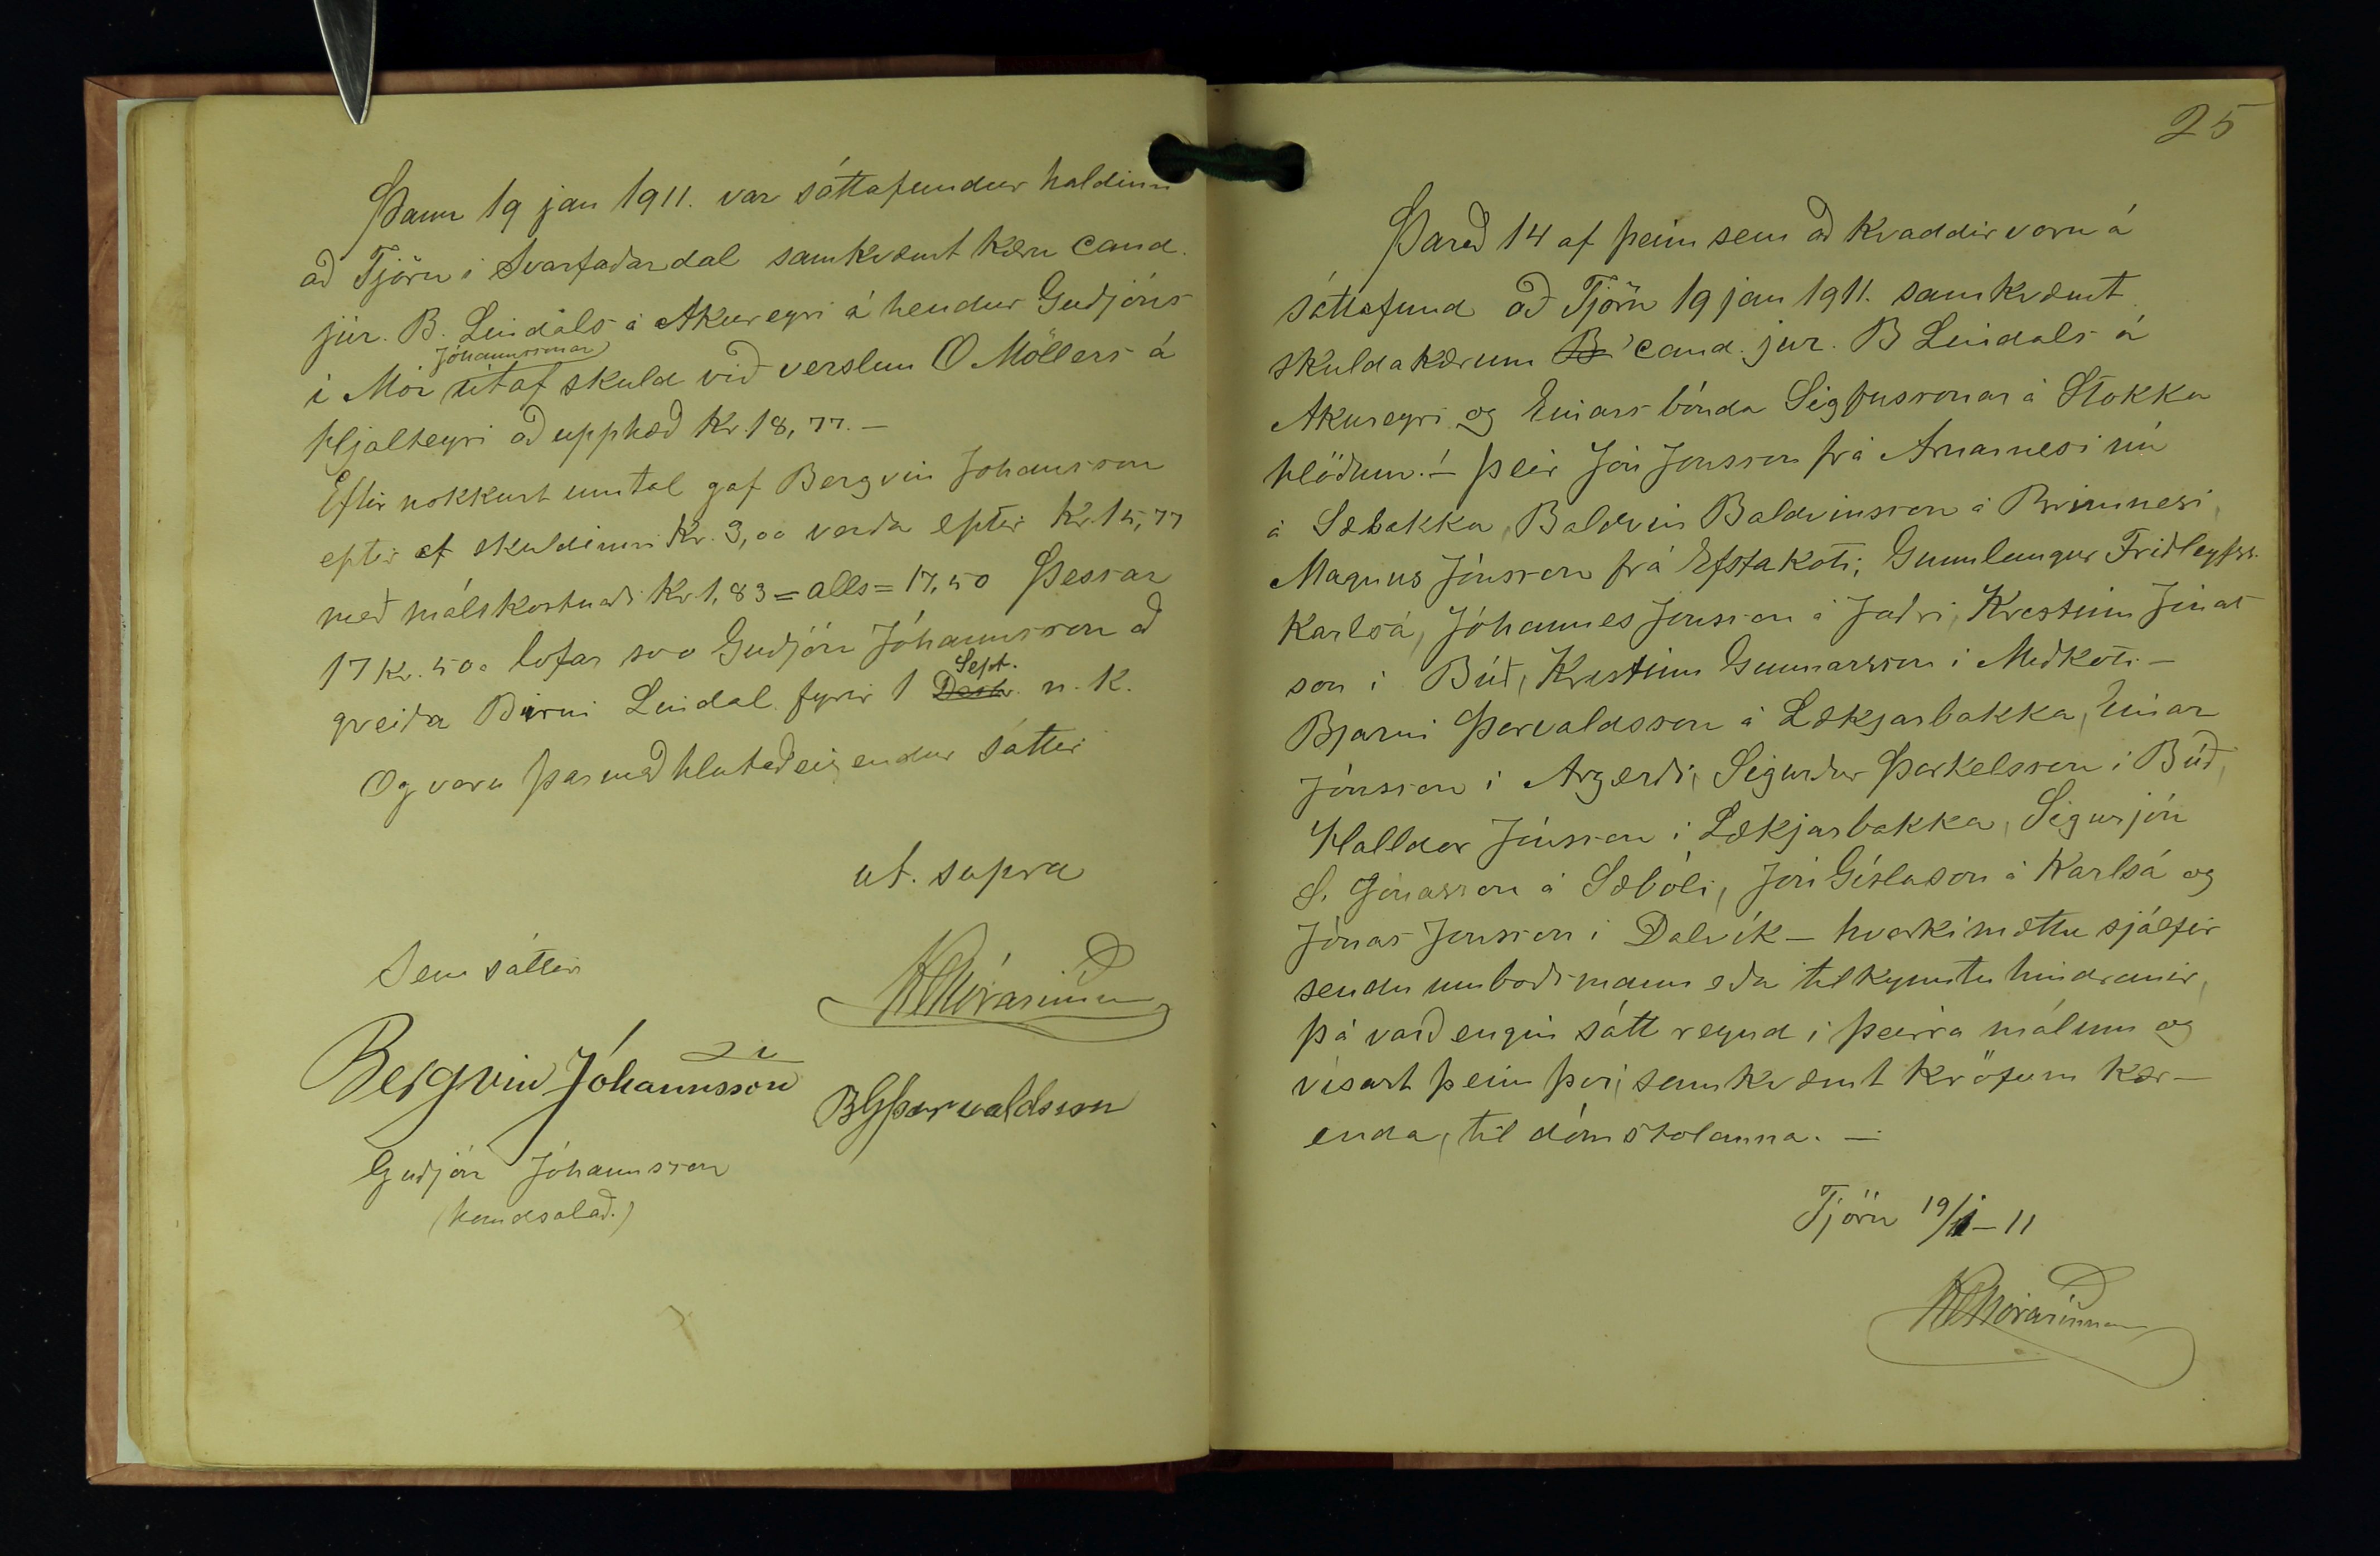 Þann 19 jan 1911. var sáttafundur haldinn
að Tjörn í Svarfaðardal samkvæmt kæru cand.
jur. B. Lindals á Akureyri á hendur Guðjóns
Jóhannssonar
í Mór útaf skuld við verslun O Möllers á
Hjalteyri að upphæð Kr. 18,77. –
Eftir nokkurt umtal gaf Bergvin Johansson
eptir af skuldinni Kr. 3,00 verða eptir Kr. 15,77
með málskostnaði Kr 1,83 = alls = 17,50 Þessar
17 Kr. 50a lofar svo Guðjón Jóhannsson að
Sept.
greiða Birni Lindal fyrir 1 n. k.
Og voru þarmeð hlutaðeigendur sáttir
ut. supra
Sem sáttir
Bergvin Jóhannsson
BGÞorvaldsson
Guðjón Jóhannsson
(handsalað.)
25
Þareð 14 af þeim sem að kvaddir voru á
sáttafund að Tjörn 19 jan 1911. samkvæmt
skuldakærum B cand. jur. B Lindals á
Akureyri og Einars bónda Sigfussonar á Stokka
hlöðum. – Þeir Jón Jonsson frá Arnarnesi nú
á Sæbakka, Baldvin Baldvinsson á Brimnesi,
Magnus Jónsson frá Efstakoti, Gunnlaugur Friðleyfss.
Karlsá, Jóhannes Jonsson á Jaðri, Krestinn Jónas
son í Búð, Krestinn Gunnarsson í Miðkoti –
Bjarni Þorvaldsson á Lækjarbakka, Einar
Jónsson í Argerði, Sigurður Þorkelsson í Búð,
Halldor Jónsson í Lækjarbakka, Sigurjón
S. Jónasson á Sæbóli, Jón Gíslason á Karlsá og
Jónas Jonsson í Dalvík – hvorki mættu sjálfir
sendu umboðsmann eða tilkynntu hindranir,
þá varð engin sátt reynd í þeirra málum og
vísast þeim því, samkvæmt kröfum kær-
enda, til dómstolanna. –
Tjörn 19/1 – 11